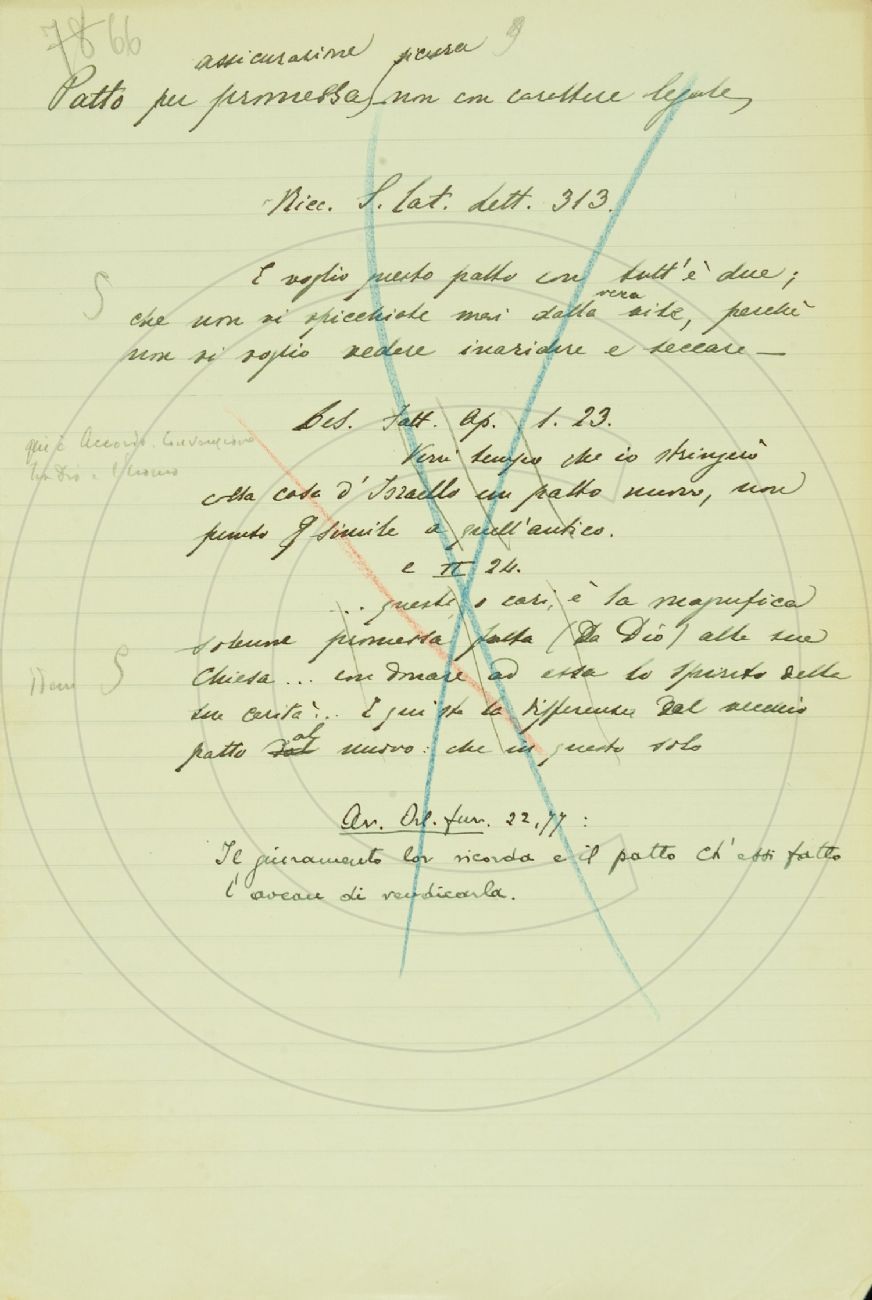 78 66
assicurazione sicura 9
Patto per promessa, non con carattere legale,
Ricc. S. Cat. Lett. 313.
S
E voglio questo patto con tutt'è due;
che non vi spicchiate mai dalla vera vite, perchè
non vi voglio vedere inaridire e seccare —
Ces. Fatt. Ap. 1. 23.
qui è Accordo. Convenzione
tra Dio e l'uomo
Verrà tempo che io stringerò
colla casa d'Israello un patto nuovo, non
punto simile a quell'antico.
e II 24.
... questa, o cari, è la magnifica
solenne promessa fatta (da Dio) alla sua
Item S
Chiesa ... con donare ad essa lo Spirito della
sua carità... E qui sta la differenza dal vecchio
patto dal al nuovo: che in questo solo
Ar. Orl. fur. 22, 77:
Il giuramento lor ricorda e il patto Ch'essi fatto
l'avean di vendicarla.